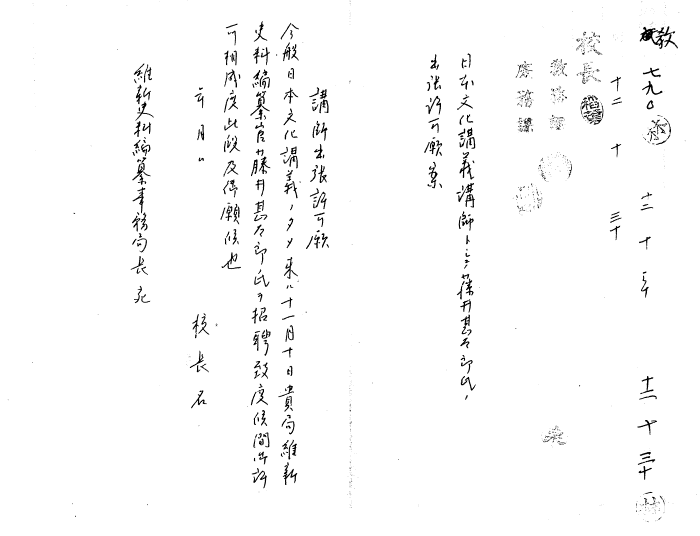 教 七九〇 十二 十 三十 十二 十 三十
十二 十 三十
校長
教務課
庶務課
日本文化講義講師トシテ藤井甚太郎氏ノ
出張許可願案
講師出張許可願
今般日本文化講義ノタメ来ル十一月十日貴局維新
史料編纂官藤井甚太郎氏ヲ招聘致度候間御許
可相成度此段及御願候也
年月日
校長名
維新史料編纂事務局長宛